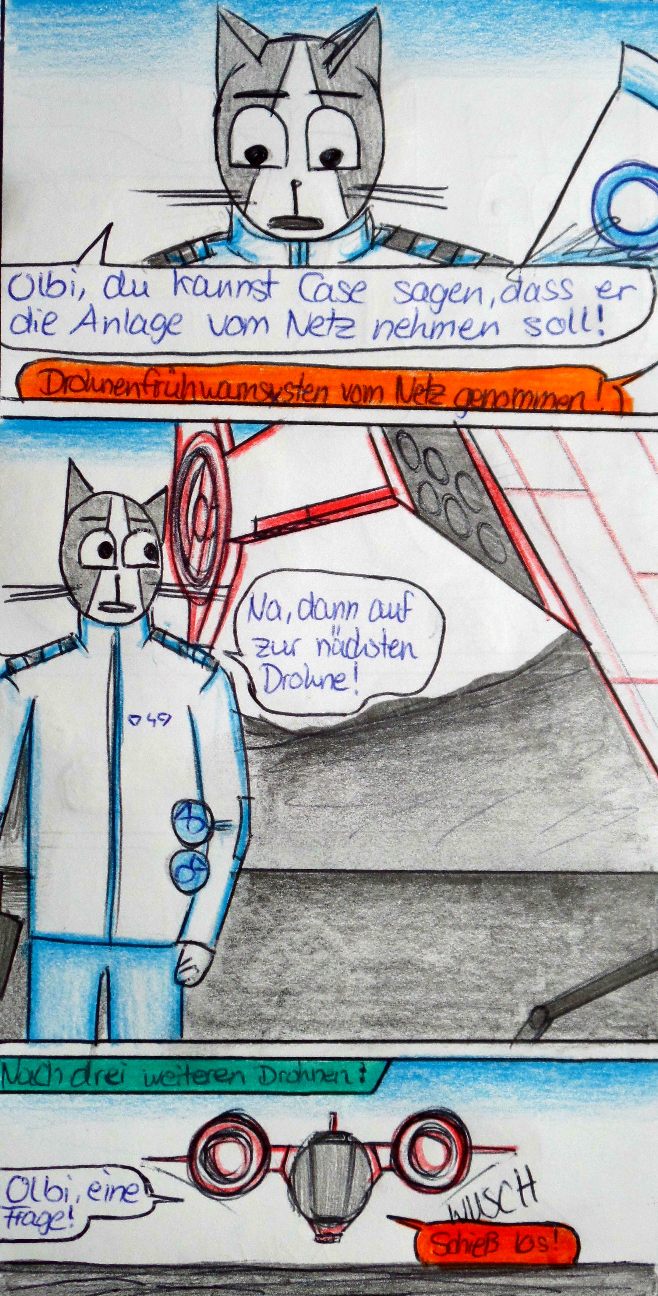 Olbi, du kannst Case sagen, dass er
die Anlage vom Netz nehmen soll!
Drohnenfrühwarnsysten vom Netz genommen!
Na, dann auf
zur nächsten
Drohne!
49
Nach drei weiteren Drohnen:
Olbi, eine
Frage!
WUSCH
Schieß los!